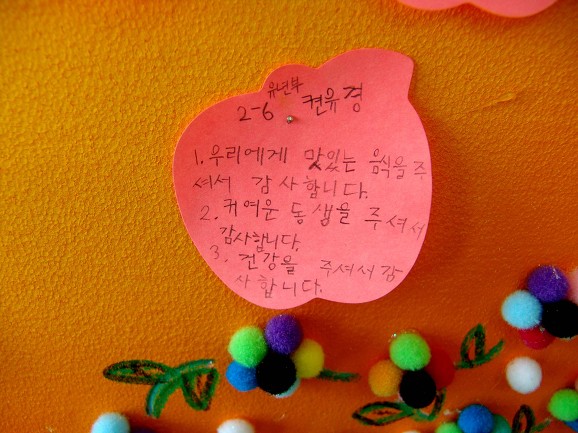 유년부
2-6 권유경
1. 우리에게 맛있는 음식을 주
셔서 감사합니다.
2. 커여운 동생을 주셔서
감사합니다.
3. 건강을 주셔서 감
사합니다.